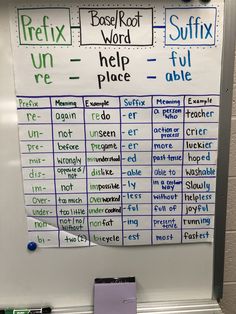 Prefix Base/Root Word Suffix
un - help - ful
re - place - able
Prefix Meaning Example Suffix Meaning Example
re- again redo -er a person who teacher
un- not unseen -er action or process crier
pre- before Pregame -er more luckier
mis- wrongly misunderstood -ed past tense hoped
dis- opposite of/not dislike -able able to washable
im- not impossible -ly in a certain way Slowly
Over- too much Overworked -less without helpless
under- too little undercooked -ful full of joyful
non- not/no/without nonfat -ing present tense running
bi- two (2) bicycle -est most fastest